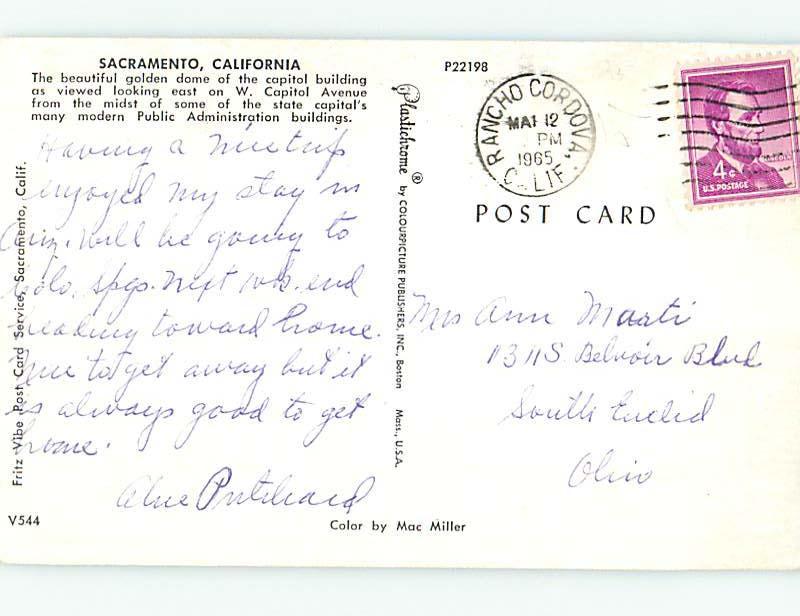 SACRAMENTO, CALIFORNIA
The beautiful golden dome of the capitol building
as viewed looking east on W. Capitol Avenue
from the midst of some of the state capital's
many modern Public Administration buildings.
Having a nice trip
enjoyed my stay in
Ariz. Will be going to
Colo. Spgs. next wk. end
heading toward home.
Nice to get away but it
is always good to get
home.
Pritchard
Fritz Vibe Post Card Service, Sacramento, Calif.
V544
Color by Mac Miller
Plastichrome ® by COLOURPICTURE PUBLISHERS, INC., Boston Mass., U.S.A.
P22198
RANCHO CORDOVA,
12
PM
1965
CALIF.
4¢
U.S. POSTAGE
POST CARD
Mrs Ann Marti
1311 S. Belvoir Blvd
South Euclid
Ohio